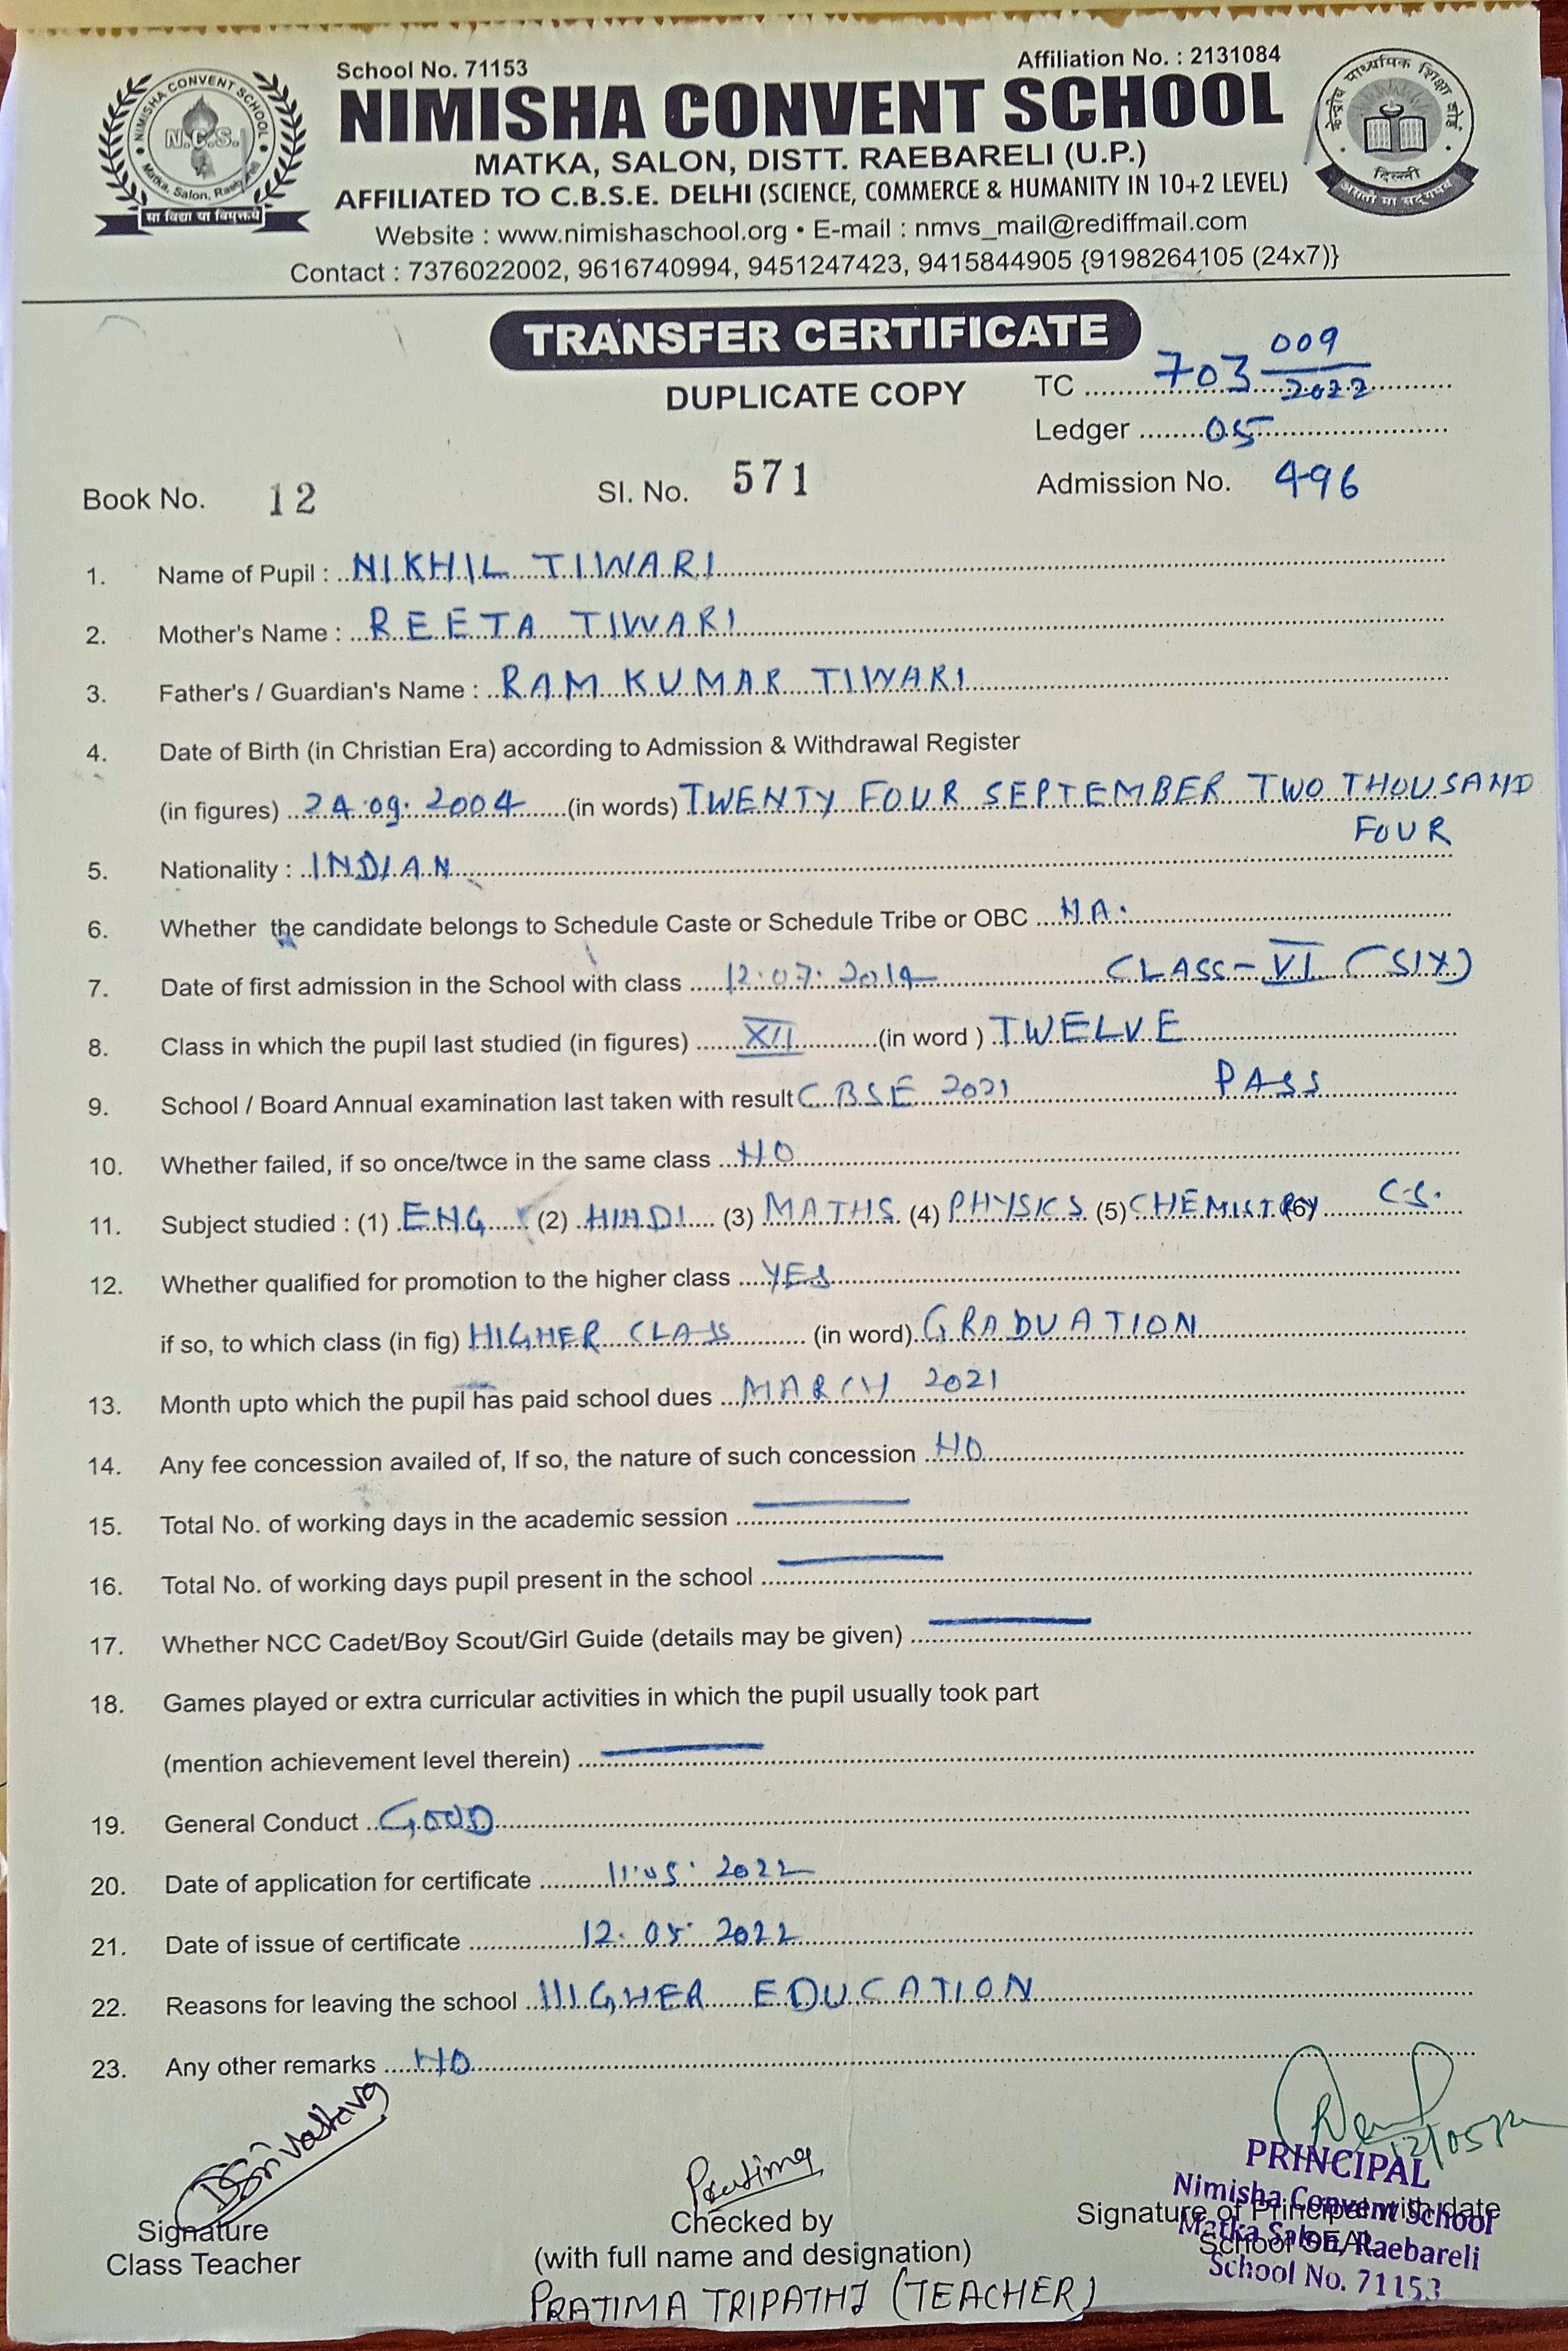 School No. 71153
Affiliation No. : 2131084
NIMISHA CONVENT SCHOOL
N.C.S.
Matka, Salon, Raebareli
सा विद्या या विमुक्तये
केन्द्रीय माध्यमिक शिक्षा बोर्ड
दिल्ली
असतो मा सद्गमय
NIMISHA CONVENT SCHOOL
MATKA, SALON, DISTT. RAEBARELI (U.P.)
AFFILIATED TO C.B.S.E. DELHI (SCIENCE, COMMERCE & HUMANITY IN 10+2 LEVEL)
Website : www.nimishaschool.org • E-mail : nmvs_mail@rediffmail.com
Contact : 7376022002, 9616740994, 9451247423, 9415844905 {9198264105 (24x7)}
TRANSFER CERTIFICATE
DUPLICATE COPY
TC 703 009/2022
Ledger 05
Book No. 12 Sl. No. 571 Admission No. 496
1. Name of Pupil : NIKHIL TIWARI
2. Mother's Name : REETA TIWARI
3. Father's / Guardian's Name : RAM KUMAR TIWARI
4. Date of Birth (in Christian Era) according to Admission & Withdrawal Register
(in figures) 24.09.2004 (in words) TWENTY FOUR SEPTEMBER TWO THOUSAND
FOUR
5. Nationality : INDIAN
6. Whether the candidate belongs to Schedule Caste or Schedule Tribe or OBC NA.
7. Date of first admission in the School with class 12.07.2014 CLASS-VI (SIX)
8. Class in which the pupil last studied (in figures) XII (in word ) TWELVE
9. School / Board Annual examination last taken with result CBSE 2021 PASS
10. Whether failed, if so once/twce in the same class NO
11. Subject studied : (1) ENG (2) HINDI (3) MATHS (4) PHYSICS (5) CHEMISTRY (6) C.S.
12. Whether qualified for promotion to the higher class YES
if so, to which class (in fig) HIGHER CLASS (in word) GRADUATION
13. Month upto which the pupil has paid school dues MARCH 2021
14. Any fee concession availed of, If so, the nature of such concession NO
15. Total No. of working days in the academic session
16. Total No. of working days pupil present in the school
17. Whether NCC Cadet/Boy Scout/Girl Guide (details may be given)
18. Games played or extra curricular activities in which the pupil usually took part
(mention achievement level therein)
19. General Conduct GOOD
20. Date of application for certificate 11.05.2022
21. Date of issue of certificate 12.05.2022
22. Reasons for leaving the school HIGHER EDUCATION
23. Any other remarks NO
Srivastava
Pratima
12/05/22
PRINCIPAL
Nimisha Convent School
Matka Salon, Raebareli
School No. 71153
Signature
Class Teacher
Checked by
(with full name and designation)
PRATIMA TRIPATHI (TEACHER)
Signature of Principal with date
School SEAL